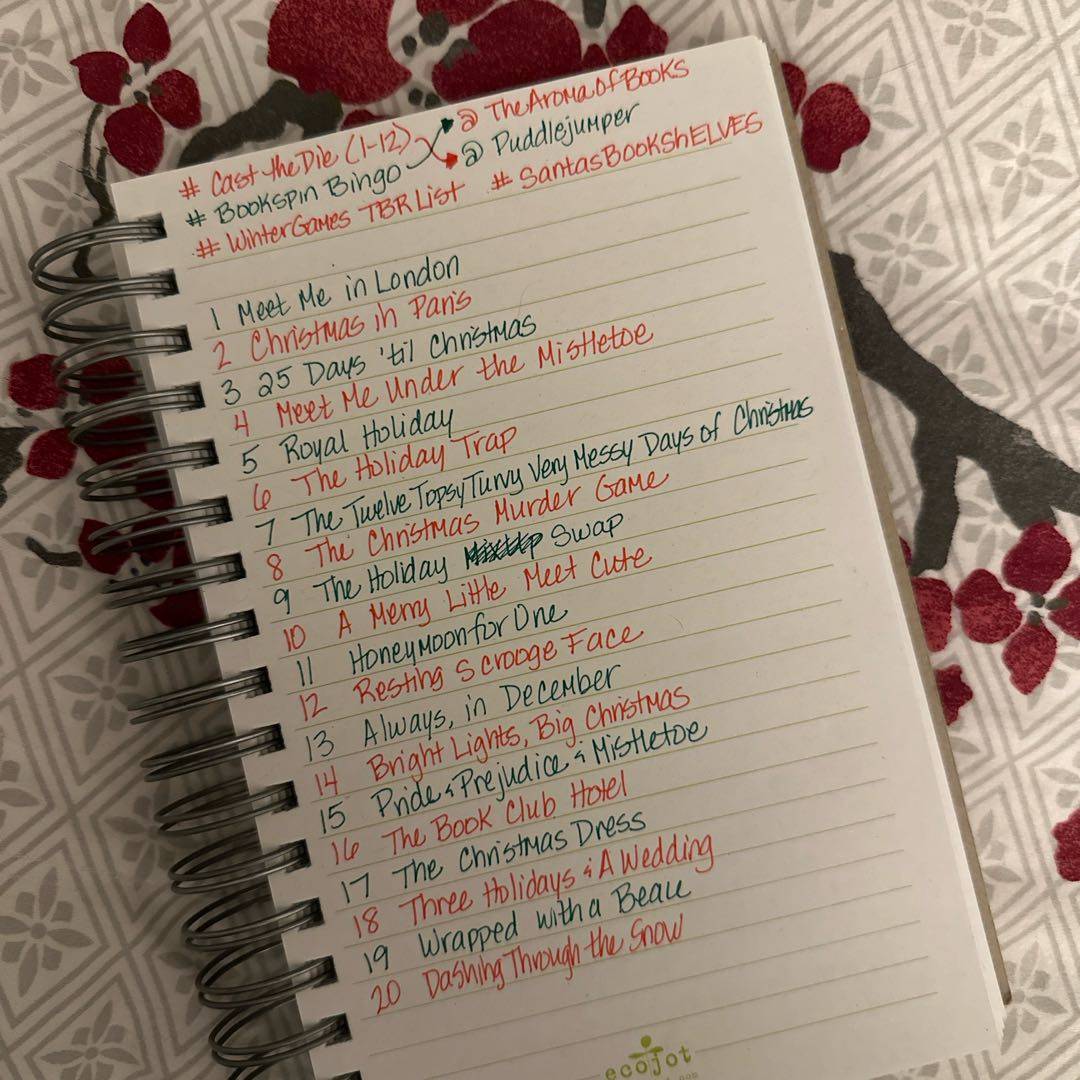 # Cast the Die (1-12) @ TheAromaOfBooks
# Bookspin Bingo @ Puddlejumper
# WinterGames TBR List # SantasBookShELVES
1 Meet Me in London
2 Christmas in Paris
3 25 Days 'til Christmas
4 Meet Me Under the Mistletoe
5 Royal Holiday
6 The Holiday Trap
7 The Twelve Topsy Turvy Very Messy Days of Christmas
8 The Christmas Murder Game
9 The Holiday Swap
10 A Merry Little Meet Cute
11 Honeymoon for One
12 Resting Scrooge Face
13 Always, in December
14 Bright Lights, Big Christmas
15 Pride & Prejudice & Mistletoe
16 The Book Club Hotel
17 The Christmas Dress
18 Three Holidays & A Wedding
19 Wrapped with a Beau
20 Dashing Through the Snow
ecojot